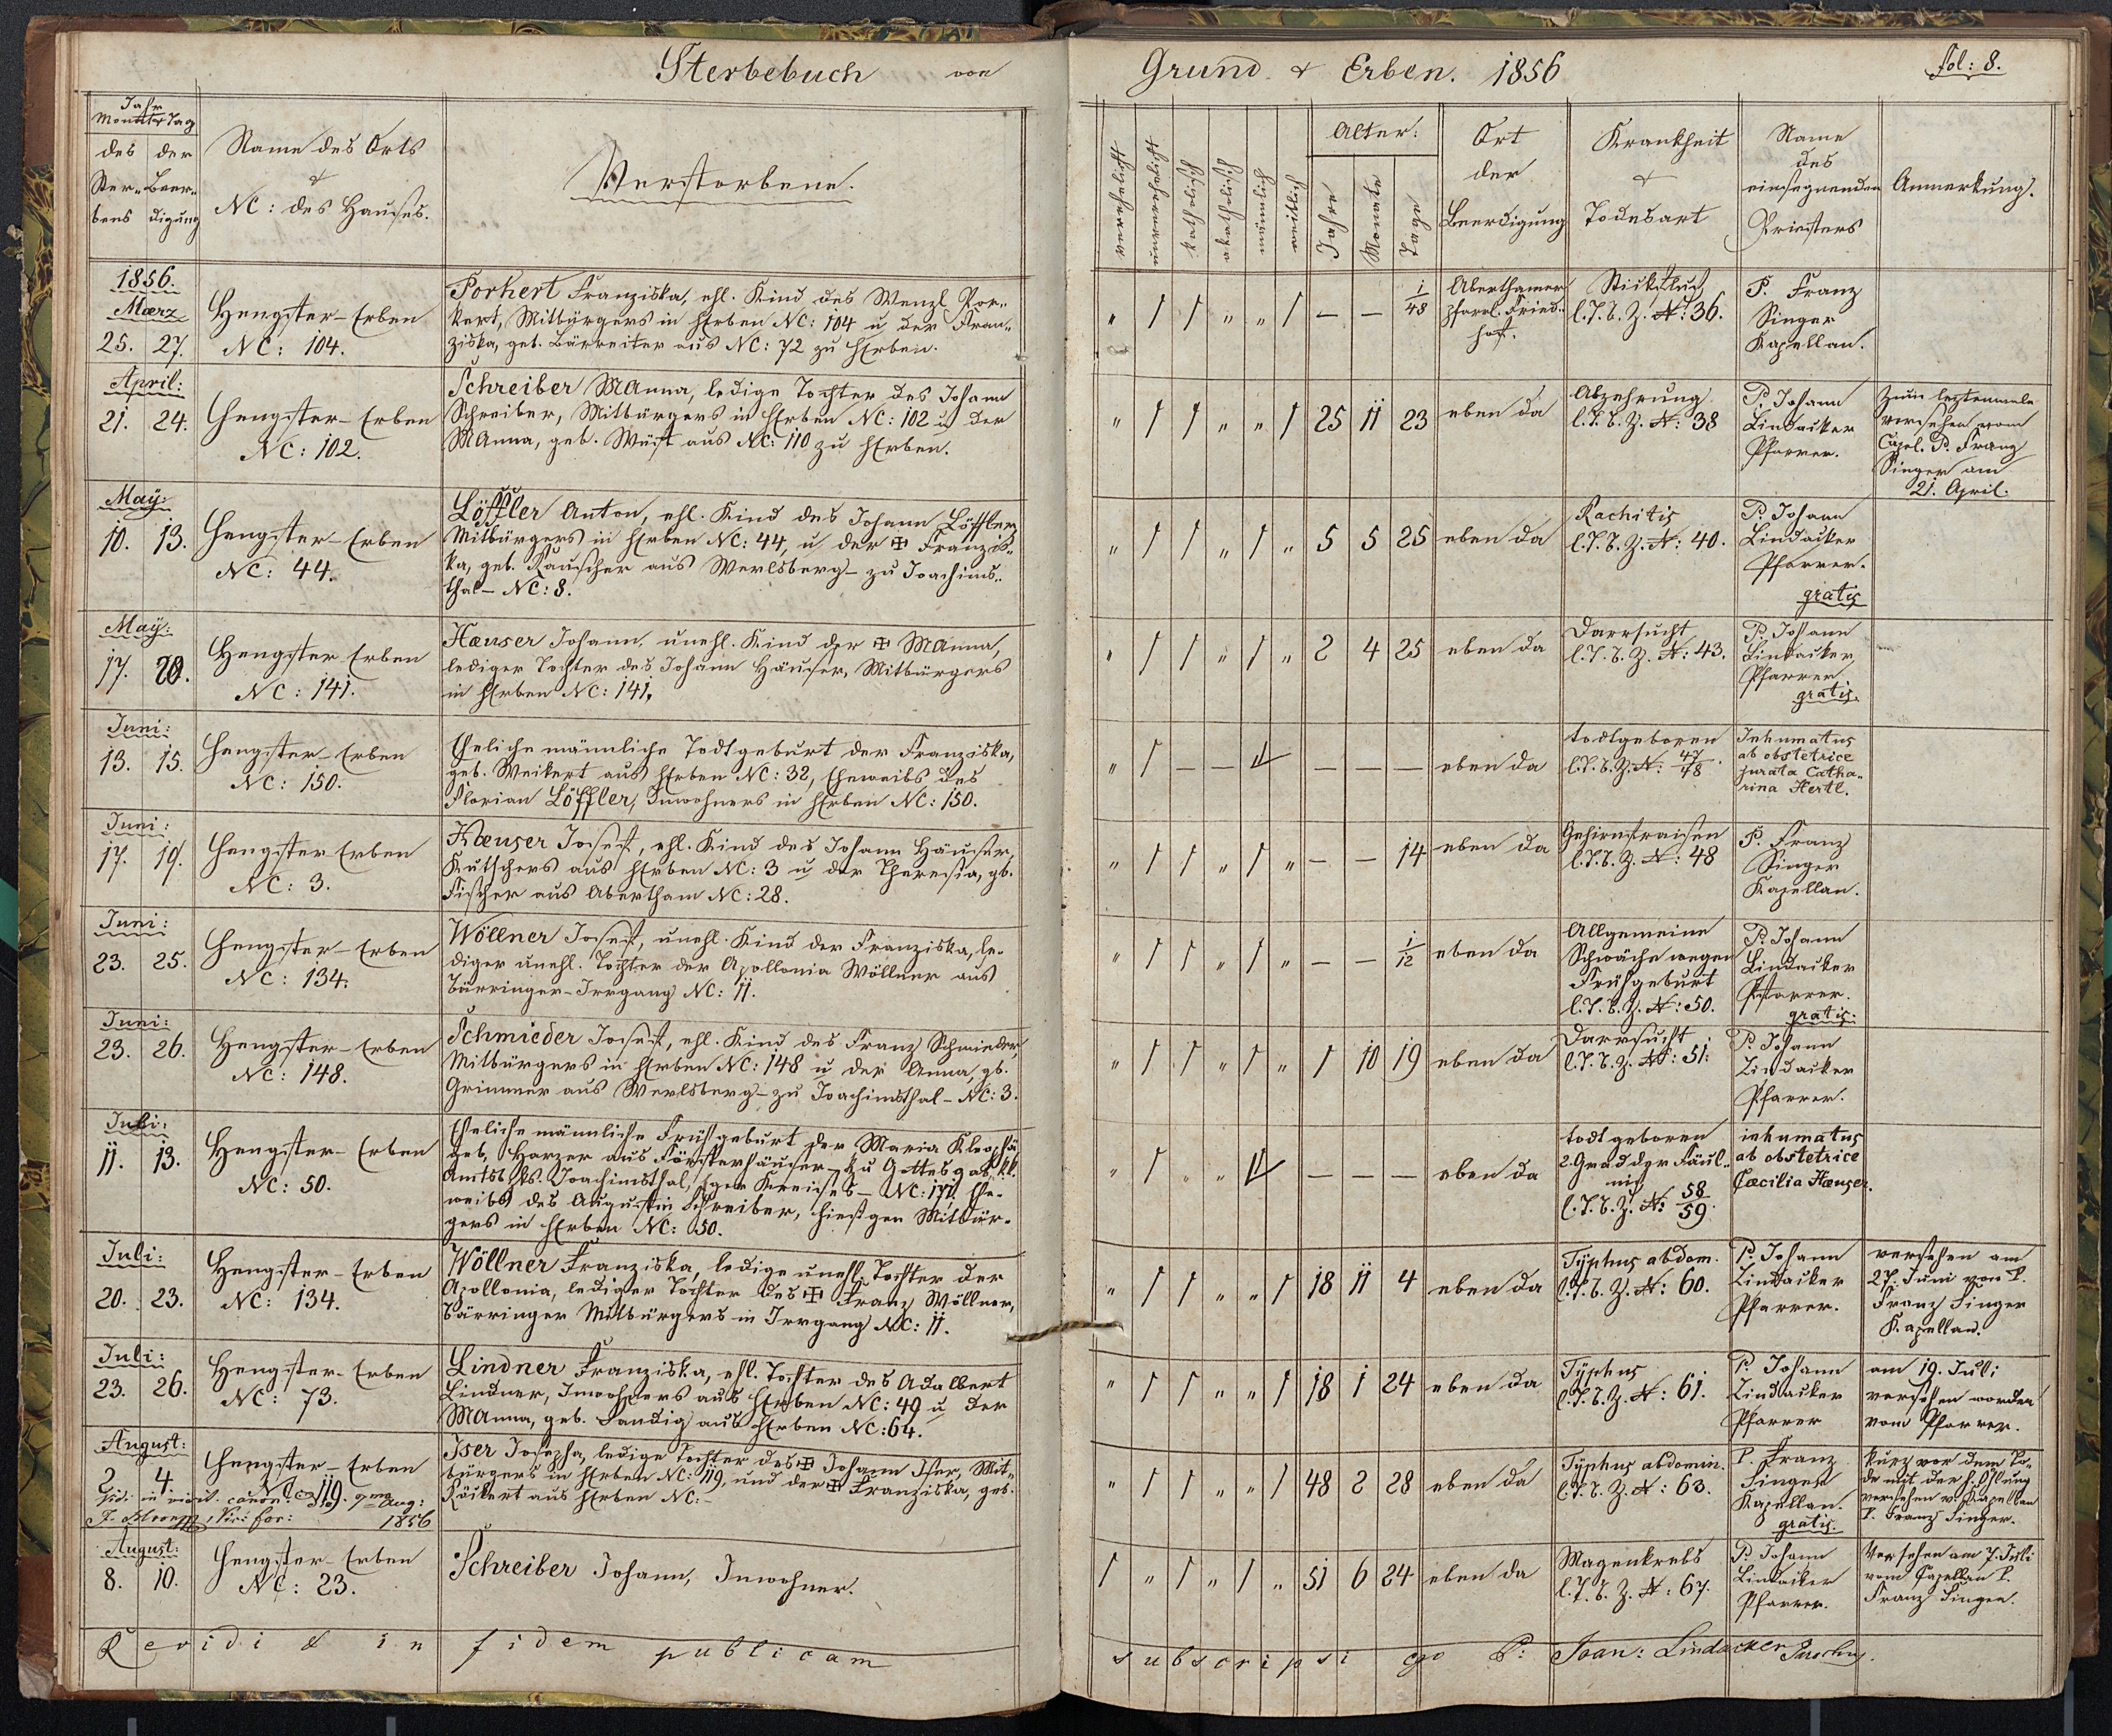 Sterbebuch von
Grund & Erben. 1856
fol: 8.
Jahr
Monat Tag
des der
Ster- Beer-
bens digung
Name des Orts
&
NC: des Hauses.
Verstorbene.
verehelicht
unverehelicht
katholisch
akatholisch
männlich
weiblich
Alter:
Jahre
Monate
Tage
Ort
der
Beerdigung
Krankheit
&
Todesart
Name
des
einsegnenden
Priesters
Anmerkung.
1856.
Maerz
25. 27.
Hengster-Erben
NC: 104.
Porkert Franziska, ehl. Kind des Wenzl Por-
kert, Mitbürgers in HErben NC: 104 u der Fran-
ziska, geb. Bärreiter aus NC: 72 zu HErben.
" 1 1 " " 1 — — 1/48
Aberthamer
pfarrl. Fried-
hof.
Stickfluß
l. T. b. Z. N: 36.
P. Franz
Singer
Kapellan.
April:
21. 24.
Hengster-Erben
NC: 102.
Schreiber MAnna, ledige Tochter des Johann
Schreiber, Mitbürgers in HErben NC: 102 u der
MAnna, geb. Wüst aus NC: 110 zu HErben.
" 1 1 " " 1 25 11 23 eben da
Abzehrung
l. T. b. Z. N: 38
P. Johann
Lindacker
Pfarrer.
Zum leztenmale
versehen vom
Capel. P. Franz
Singer am
21. April.
May:
10. 13.
Hengster-Erben
NC: 44.
Löffler Anton, ehl. Kind des Johann Löffler,
Mitbürgers in HErben NC: 44, u der ✠ Franzis-
ka, geb. Rauscher aus Werlsberg- zu Joachims-
thal- NC: 8.
" 1 1 " 1 " 5 5 25 eben da
Rachitis
l. T. b. Z. N: 40.
P. Johann
Lindacker
Pfarrer.
gratis
May:
17. 20.
Hengster Erben
NC: 141.
Haeuser Johann, unehl. Kind der ✠ MAnna,
lediger Tochter des Johann Häuser, Mitbürgers
in HErben NC: 141.
" 1 1 " 1 " 2 4 25 eben da
Darrsucht
l. T. b. Z. N: 43.
P. Johann
Lindacker,
Pfarrer
gratis.
Juni:
13. 15.
Hengster-Erben
NC: 150.
Eheliche männliche Todtgeburt der Franziska,
geb. Weikert aus HErben NC: 32, Eheweibs des
Florian Löffler, Inwohners in HErben NC: 150.
" 1 — — — — — eben da
todtgeboren
l. T. b. Z. N: 47/48.
Inhumatus
ab obstetrice
jurata Catha-
rina Hertl.
Juni:
17. 19.
Hengster Erben
NC: 3.
Haeuser Josef, ehl. Kind des Johann Häuser,
Kutschers aus HErben NC: 3 u der Theresia, gb.
Fischer aus Abertham NC: 28.
" 1 1 " 1 " — — 14 eben da
Gehirnfraisen
l. T. b. Z. N: 48
P. Franz
Singer
Kapellan.
Juni:
23. 25.
Hengster-Erben
NC: 134.
Wöllner Josef, unehl. Kind der Franziska, le-
diger unehl. Tochter der Apollonia Wöllner aus
Bärringer-Irrgang NC: 11.
" 1 1 " 1 " — — 1/12 eben da
Allgemeine
Schwäche wegen
Frühgeburt
l. T. b. Z. N: 50.
P. Johann
Lindacker
Pfarrer.
gratis:
Juni:
23. 26.
Hengster-Erben
NC: 148.
Schmieder Josef, ehl. Kind des Franz Schmieder,
Mitbürgers in HErben NC: 148 u der Anna, gb.
Grimmer aus Werlsberg- zu Joachimsthal- NC: 3.
" 1 1 " 1 " 1 10 19 eben da
Darrsucht
l. T. b. Z. N: 51:
P. Johann
Lindacker
Pfarrer.
Juli:
11. 13.
Hengster-Erben
NC: 50.
Eheliche männliche Frühgeburt der Maria Kleophä
geb. Harzer aus Försterhäuser- zu Gottesgab, kk.
Amtsbzks. Joachimsthal, Eger Kreises- NC: 171. Ehe-
weibs des Augustin Schreiber, hiesigen Mitbür-
gers in HErben NC: 50.
" 1 " " — — — eben da
todt geboren
2. Grad der Fäul-
niß
l. T. b. Z. N: 58/59.
inhumatus
ab obstetrice
Caecilia Haeuser.
Juli:
20. 23.
Hengster-Erben
NC: 134.
Wöllner Franziska, ledige unehl. Tochter der
Apollonia, lediger Tochter des ✠ Franz Wöllner,
Bärringer Mitbürgers in Irrgang NC: 11.
" 1 1 " " 1 18 11 4 eben da
Typhus abdom.
l. T. b. Z. N: 60.
P. Johann
Lindacker
Pfarrer.
versehen am
27. Juni von P.
Franz Singer
Kapellan.
Juli:
23. 26.
Hengster-Erben
NC: 73.
Lindner Franziska, ehl. Tochter des Adalbert
Lindner, Inwohners aus HErben NC: 49 u der
MAnna, geb. Sandig aus HErben NC: 64.
" 1 1 " " 1 18 1 24 eben da
Typhus
l. T. b. Z. N: 61.
P. Johann
Lindacker
Pfarrer
am 19. Juli
versehen worden
vom Pfarrer.
August:
2. 4.
Hengster-Erben
NC: 119.
Iser Josepha, ledige Tochter des ✠ Johann Iser, Mit-
bürgers in HErben NC: 119, und der ✠ Franziska, geb.
Röckert aus HErben NC:-
" 1 1 " " 1 48 2 28 eben da
Typhus abdomin.
l. T. b. Z. N: 63.
P. Franz
Singer
Kapellan.
gratis.
kurz vor dem To-
de mit der h. Öhlung
versehen v. Kapellan
P. Franz Singer.
Vidi in visit. canon. Aug:
1856
August:
8. 10.
Hengster-Erben
NC: 23.
Schreiber Johann, Inwohner.
1 " 1 " 1 " 51 6 24 eben da
Magenkrebs
l. T. b. Z. N: 67.
P. Johann
Lindacker
Pfarrer.
Versehen am 7. Juli
vom Capellan P.
Franz Singer.
Revidi & in fidem publicam
subscripsi ego P: Joan: Lindacker Parochus.